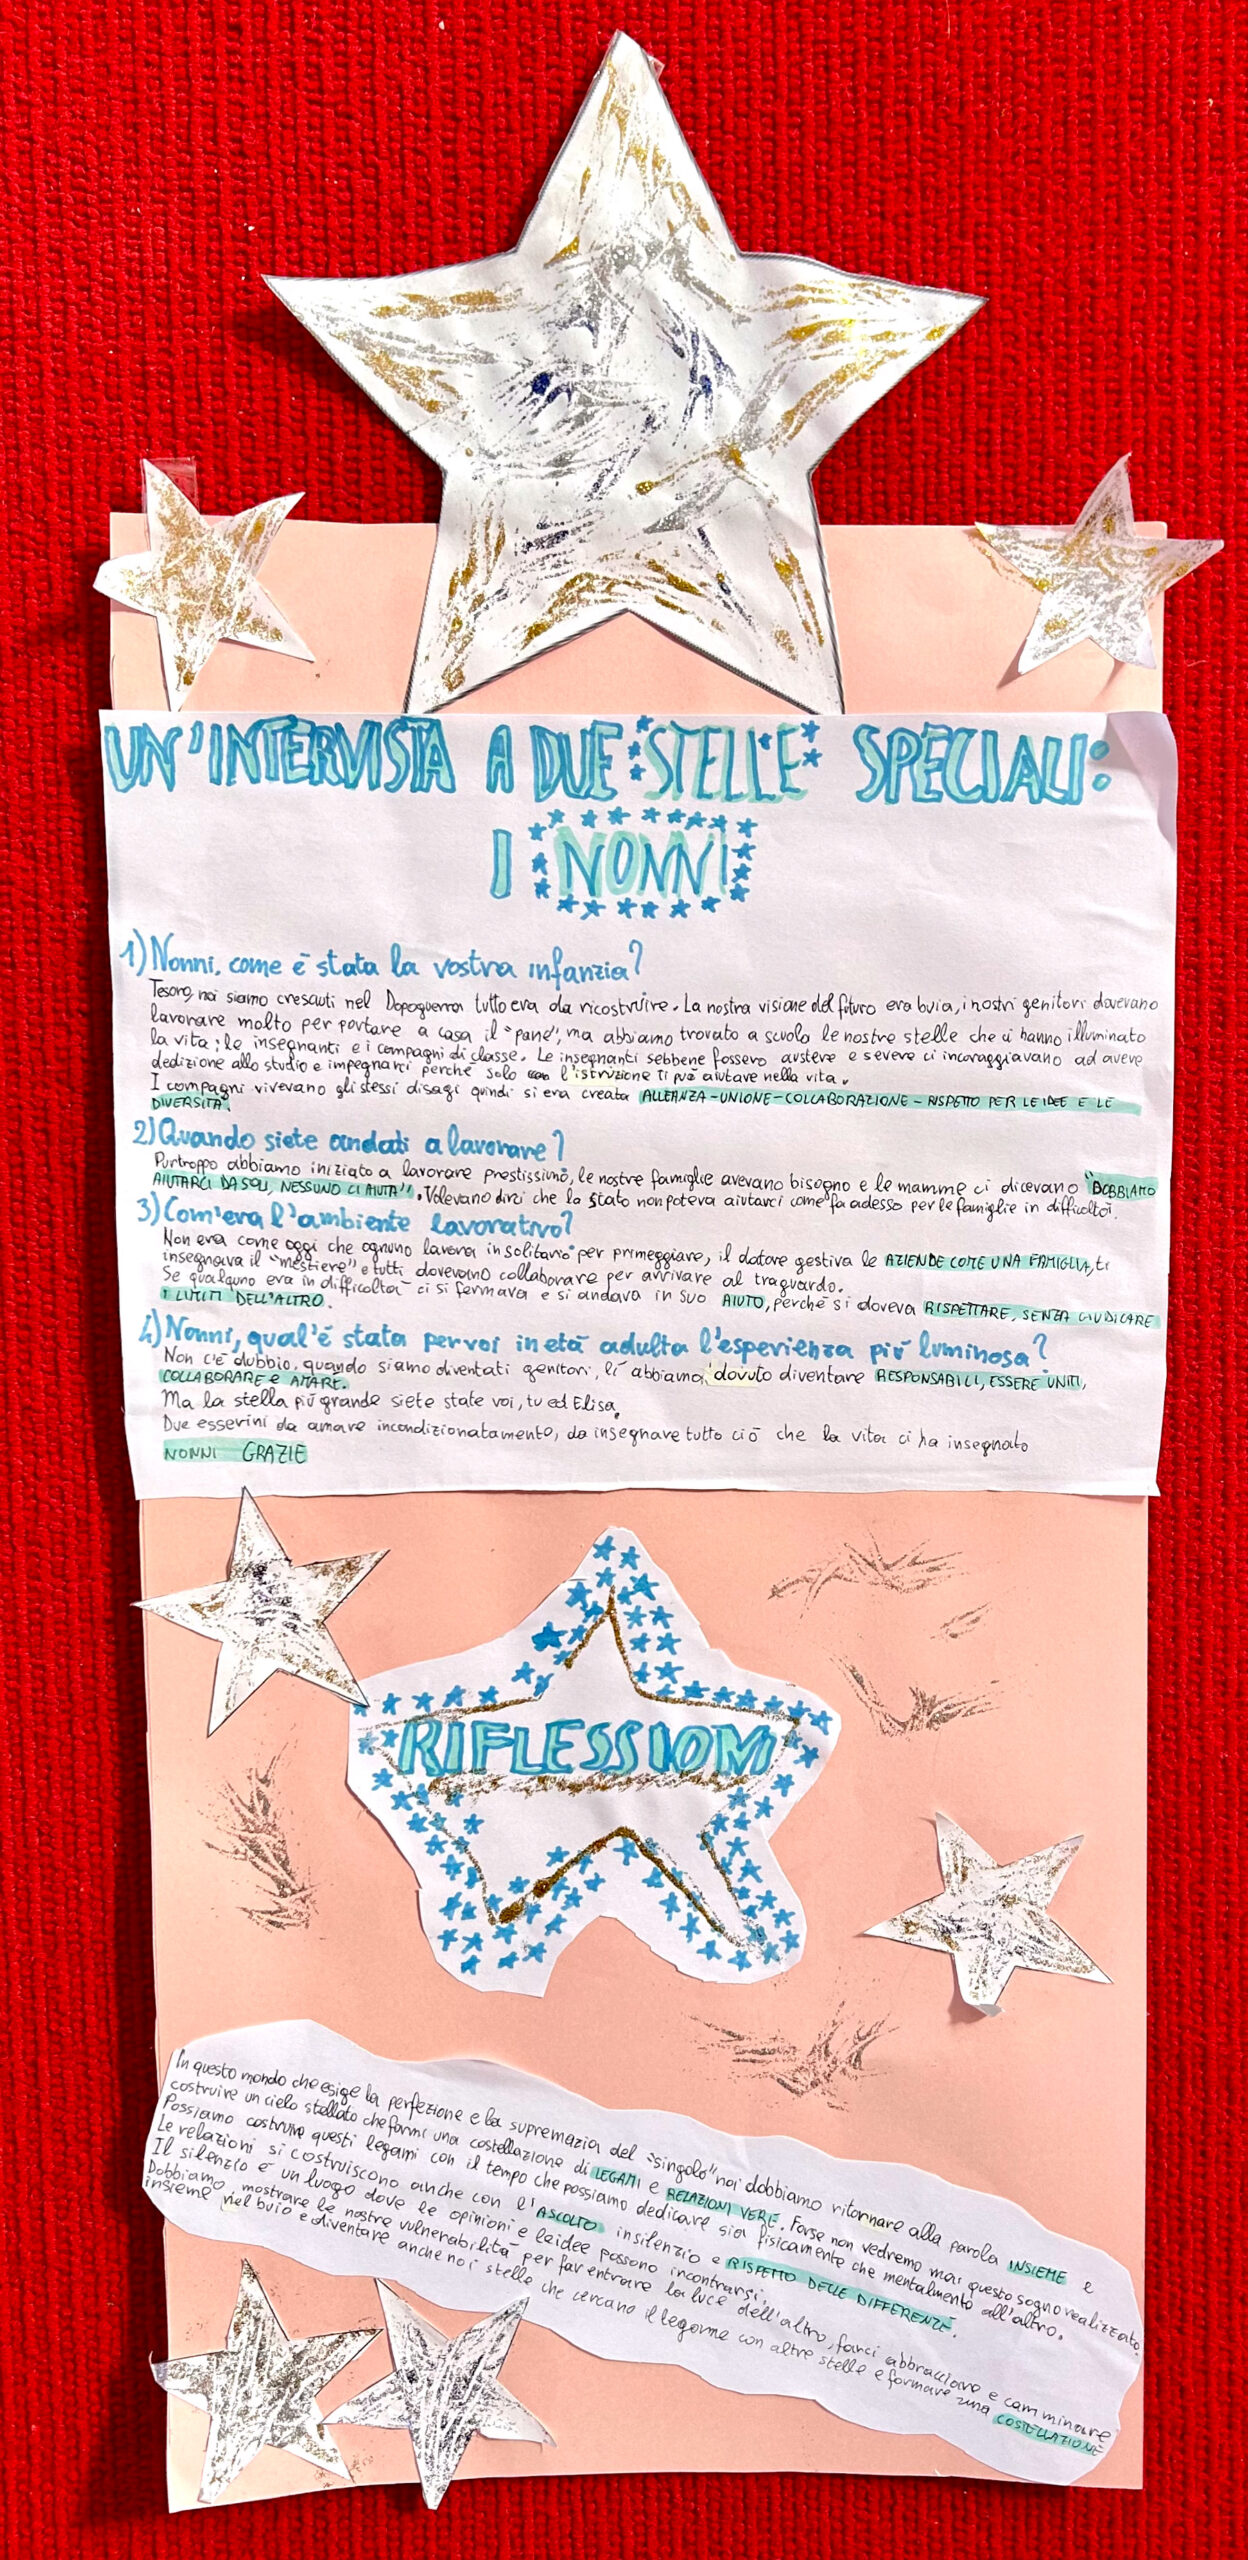 UN'INTERVISTA A DUE STELLE SPECIALI:
I NONNI
1) Nonni, come è stata la vostra infanzia?
Tesoro, noi siamo cresciuti nel Dopoguerra tutto era da ricostruire. La nostra visione del futuro era buia, i nostri genitori dovevano
lavorare molto per portare a casa il "pane", ma abbiamo trovato a scuola le nostre stelle che ci hanno illuminato
la vita: le insegnanti e i compagni di classe. Le insegnanti sebbene fossero austere e severe ci incoraggiavano ad avere
dedizione allo studio e impegnarci perché solo l'istruzione ti può aiutare nella vita.
I compagni vivevano gli stessi disagi quindi si era creata ALLEANZA-UNIONE-COLLABORAZIONE - RISPETTO PER LE IDEE E LE
DIVERSITÀ.
2) Quando siete andati a lavorare?
Purtroppo abbiamo iniziato a lavorare prestissimo, le nostre famiglie avevano bisogno e le mamme ci dicevano "DOBBIAMO
AIUTARCI DA SOLI, NESSUNO CI AIUTA". Volevano dirci che lo stato non poteva aiutarci come fa adesso per le famiglie in difficoltà.
3) Com'era l'ambiente lavorativo?
Non era come oggi che ognuno lavora in solitario per primeggiare, il datore gestiva le AZIENDE COME UNA FAMIGLIA, ti
insegnava il "mestiere" e tutti dovevamo collaborare per arrivare al traguardo.
Se qualcuno era in difficoltà ci si fermava e si andava in suo AIUTO, perché si doveva RISPETTARE, SENZA GIUDICARE
I LIMITI DELL'ALTRO.
4) Nonni, qual'è stata per voi in età adulta l'esperienza più luminosa?
Non c'è dubbio, quando siamo diventati genitori, lì abbiamo dovuto diventare RESPONSABILI, ESSERE UNITI,
COLLABORARE e AMARE.
Ma la stella più grande siete state voi, tu ed Elisa.
Due esserini da amare incondizionatamento, da insegnare tutto ciò che la vita ci ha insegnato
NONNI GRAZIE
RIFLESSIONI
In questo mondo che esige la perfezione e la supremazia del "singolo" noi dobbiamo ritornare alla parola INSIEME e
costruire un cielo stellato che formi una costellazione di LEGAMI e RELAZIONI VERE. Forse non vedremo mai questo sogno realizzato.
Possiamo costruire questi legami con il tempo che possiamo dedicare sia fisicamente che mentalmente all'altro.
Le relazioni si costruiscono anche con l'ASCOLTO in silenzio e RISPETTO DELLE DIFFERENZE.
Il silenzio è un luogo dove le opinioni e le idee possono incontrarsi.
Dobbiamo mostrare le nostre vulnerabilità per far entrare la luce dell'altro, farci abbracciare e camminare
insieme nel buio e diventare anche noi stelle che cercano il legame con altre stelle e formare una COSTELLAZIONE